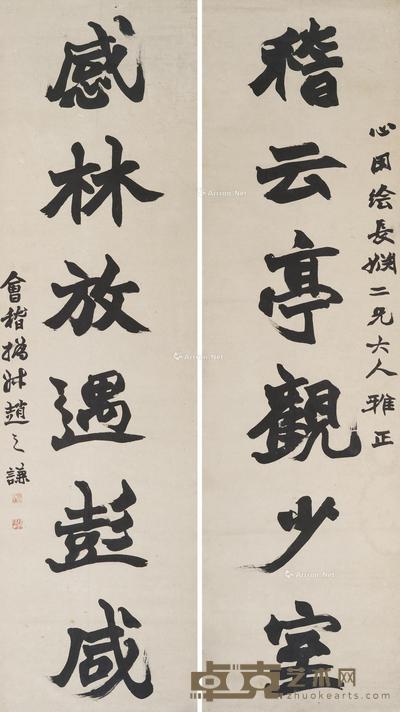 稽云亭觀少室
心绘長二兄大人雅正
感林放遇彭咸
會稽撝叔趙之謙
Artron.Net
Artron.Net
Artron.Net
Artron.Net
卓克艺术网
zhuokearts.com